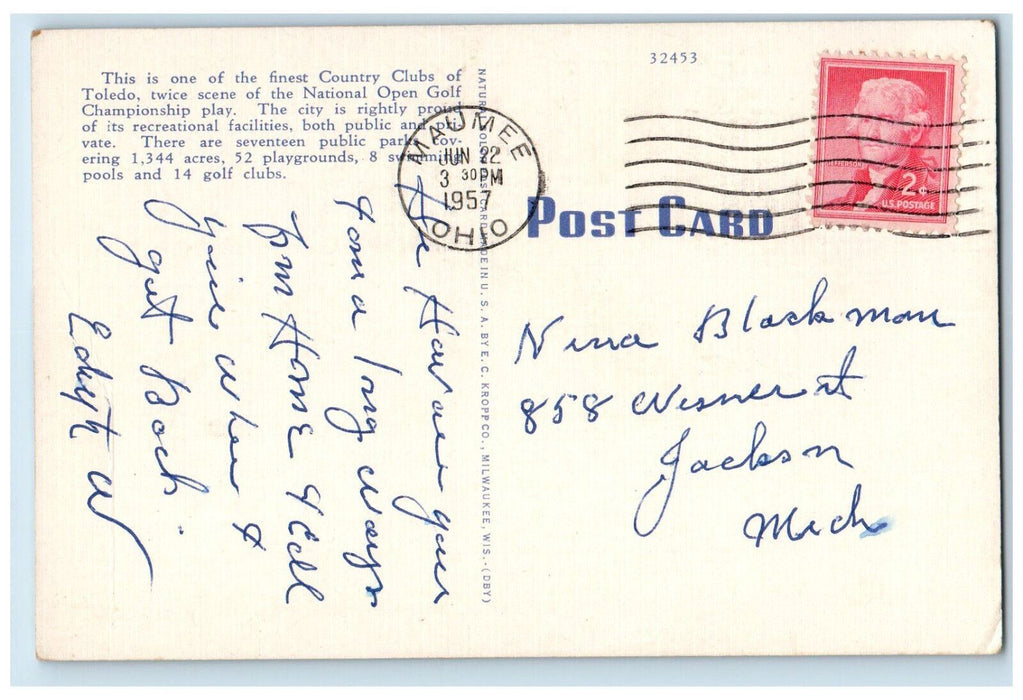 This is one of the finest Country Clubs of
Toledo, twice scene of the National Open Golf
Championship play. The city is rightly proud
of its recreational facilities, both public and pri-
vate. There are seventeen public parks cov-
ering 1,344 acres, 52 playgrounds, 8 swimming
pools and 14 golf clubs.
How are you
long ways
I'm Home
when I
get Back.
Edyth W
NATURAL COLOR POST CARD MADE IN U. S. A. BY E. C. KROPP CO., MILWAUKEE, WIS. - (DBY)
MAUMEE
JUN 22
3 30 PM
1957
OHIO
32453
JEFFERSON
2¢
U.S. POSTAGE
POST CARD
Nina Blackman
858 Wesner st
Jackson
Mich